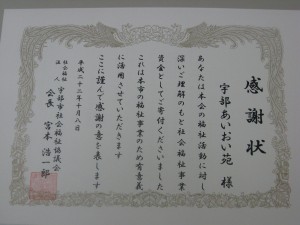 感謝状
宇部あいおい苑 様
あなたは本会の福祉活動に対し
深いご理解のもと社会福祉事業
資金としてご寄付くださいました
これは本市の福祉事業のため有意義
に活用させていただきます
ここに謹んで感謝の意を表します
平成二十三年十月八日
社会福祉法人 宇部市社会福祉協議会
会長 宮本 浩一郎